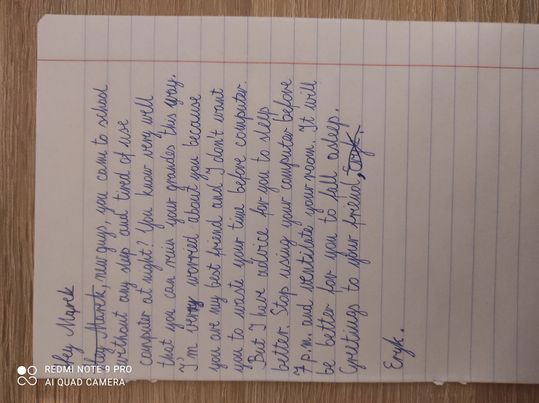 Hey Marek
Hey Marek, guys, you come to school
without any sleep and tired of use
computer at night? You know very well
that you can ruin your grades this way.
I'm very worried about you because
you are my best friend and I don't want
you to waste your time before computer.
But I have advice for you to sleep
better. Stop using your computer before
7 p.m. and ventilate your room. It will
be better for you to fall asleep.
Greetings to your friend, Eryk.
Eryk.
REDMI NOTE 9 PRO
AI QUAD CAMERA